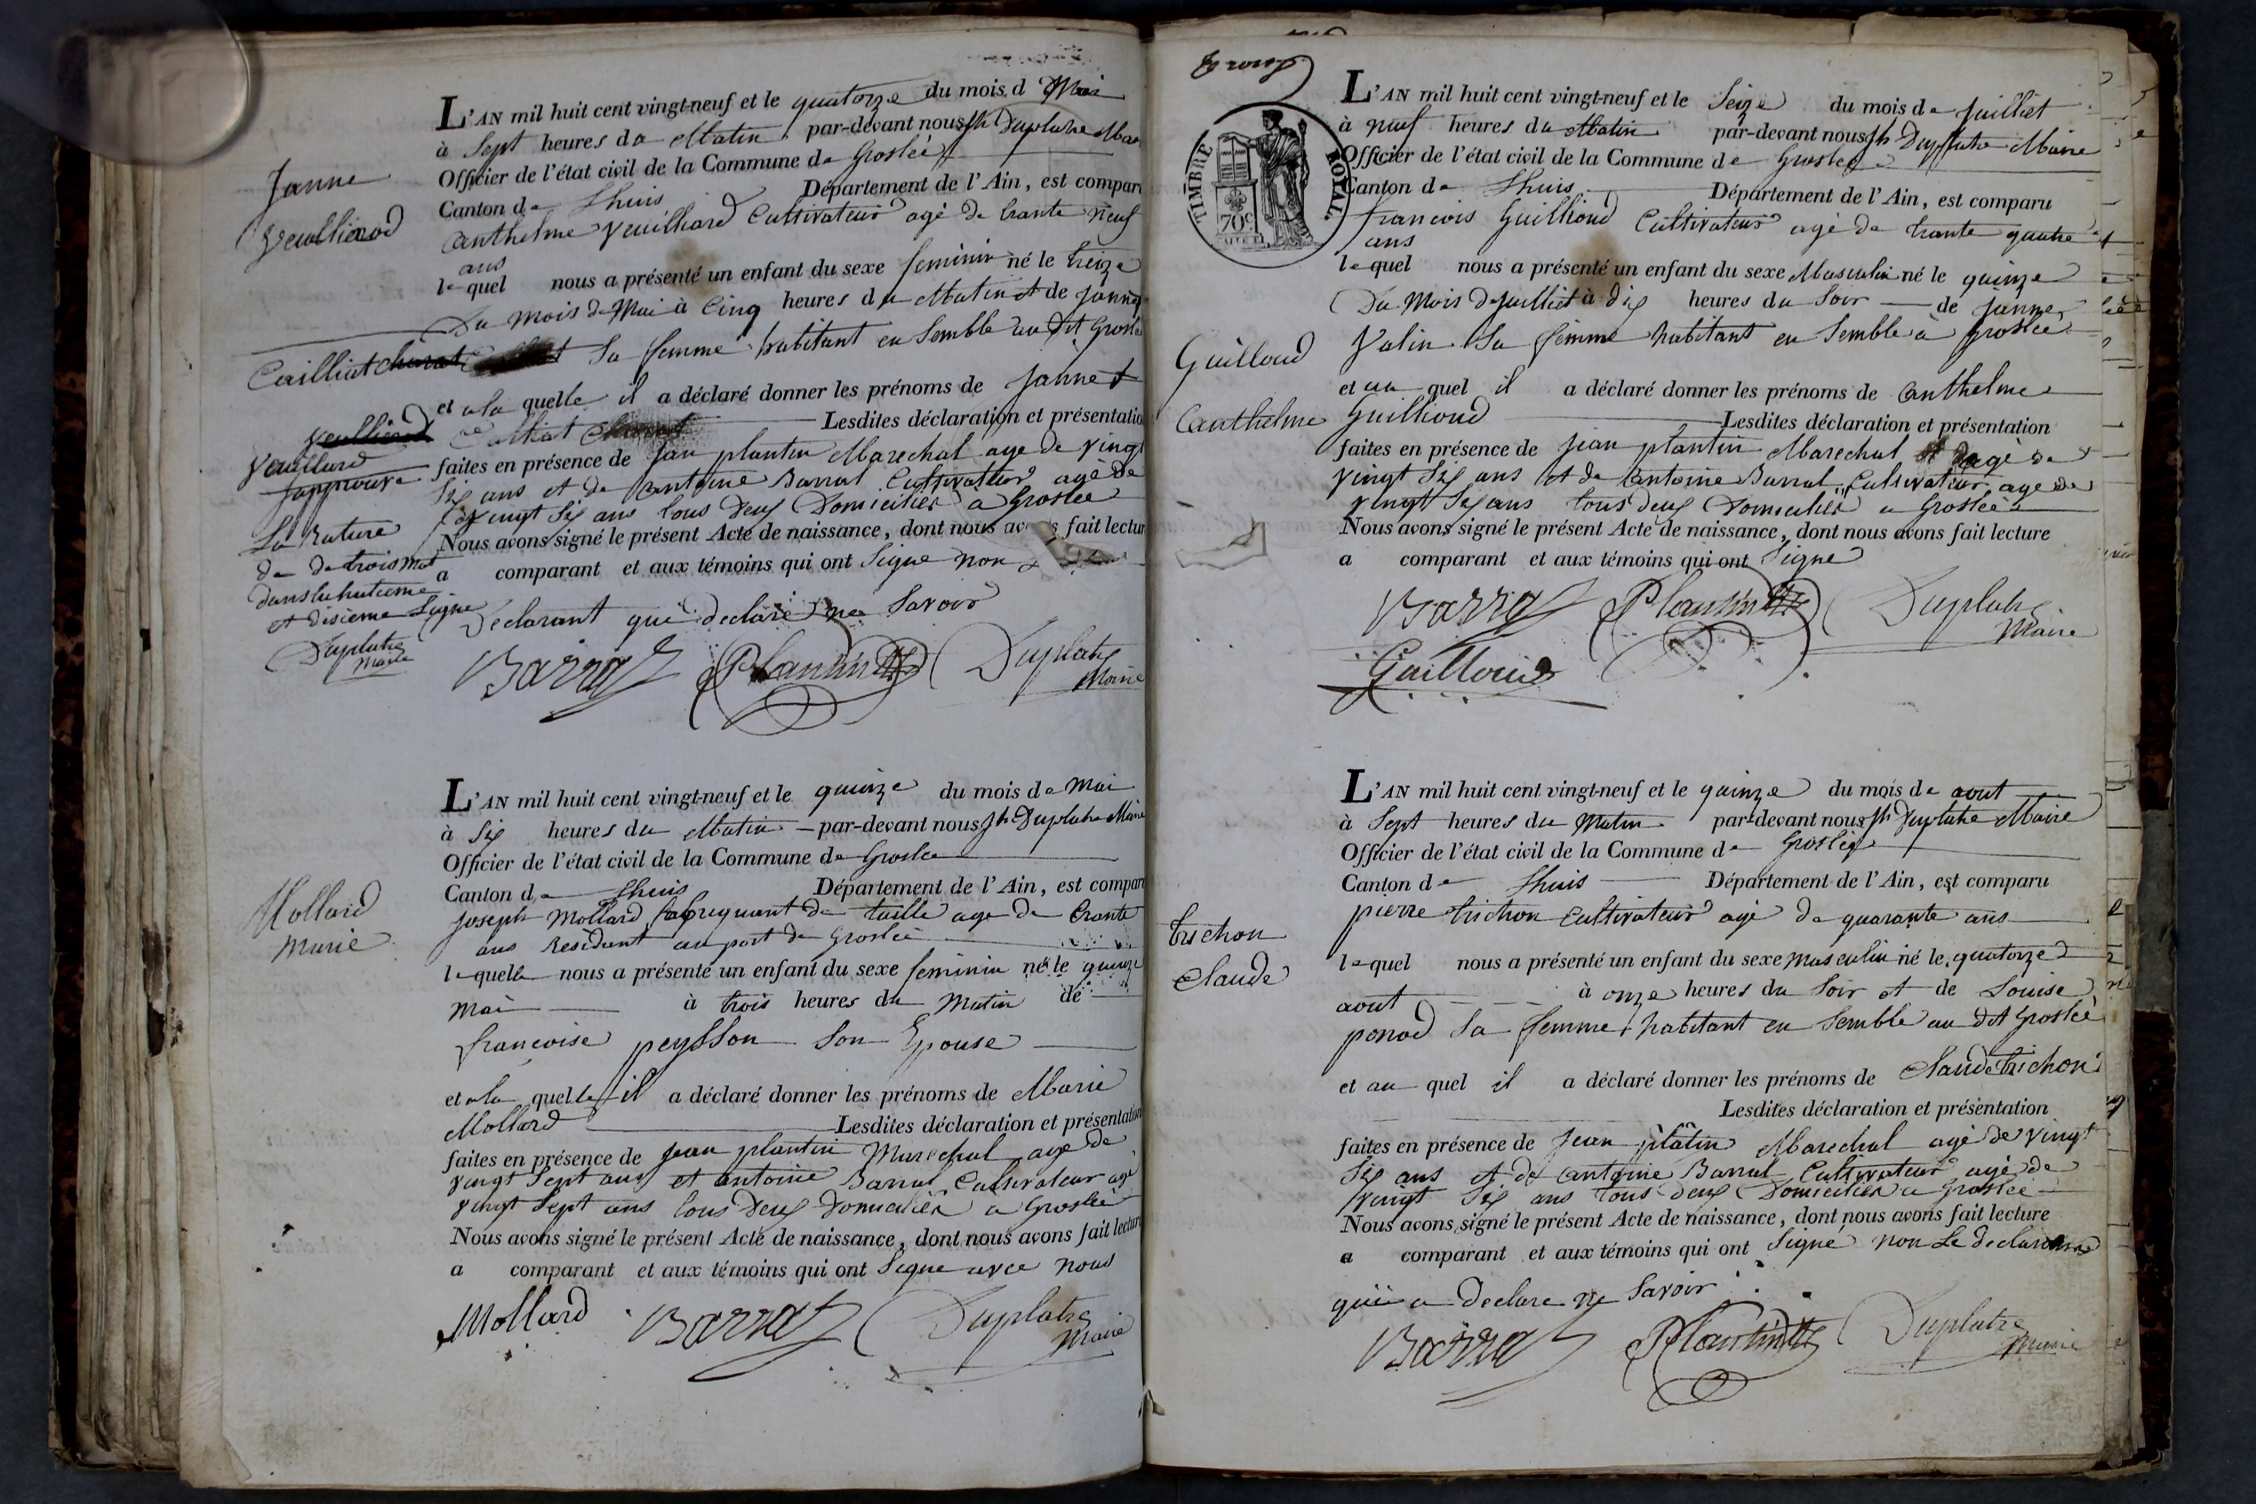 Janne
Veuilliard
L'AN mil huit cent vingt-neuf et le quatorze du mois d Mai
à Sept heures du Matin par-devant nous Jh Duplatre Maire
Officier de l'état civil de la Commune de Groslée
Canton de Lhuis Département de l'Ain, est comparu
anthelme Veuilliard Cultivateur agé de trante neuf
ans
lequel nous a présenté un enfant du sexe feminin né le treize
Du mois de Mai à Cinq heures du Matin et de Janne
Cailliat sa femme habitant en semble au dit Groslée
et a la quelle il a déclaré donner les prénoms de Janne
Lesdites déclaration et présentation
faites en présence de Jan plantin Marechal age de vingt
Six ans et de antoine Barrat Cultivateur age de
vingt Six ans tous deux Domicilies a Groslee
Nous avons signé le présent Acte de naissance, dont nous avons fait lecture
a comparant et aux témoins qui ont Signe non
Declarant qui declare ne Savoir
Veuilliard
Veuillard
J'approuve
La Rature
de de trois mot
dans la huitieme
et disieme Ligne
Duplatre
Maire
Barrat Plantin Duplatre
Maire
Mollard
Marie
L'AN mil huit cent vingt-neuf et le quinze du mois de Mai
à Six heures du Matin par-devant nous Jh Duplatre Maire
Officier de l'état civil de la Commune de Groslee
Canton de Lhuis Département de l'Ain, est comparu
joseph Mollard fabriquant de tuille age de trante
ans Residant au port de Groslée
lequelle nous a présenté un enfant du sexe feminin né le quinze
Mai à trois heures du Matin de
francoise peysson Son Epouse
et a la quelle il a déclaré donner les prénoms de Marie
Mollard Lesdites déclaration et présentation
faites en présence de jean plantin Marechal age de
vingt Sept ans et antoine Barrat Cultivateur agé
vingt Sept ans tous deux domicilies a Groslée
Nous avons signé le présent Acte de naissance, dont nous avons fait lecture
a comparant et aux témoins qui ont Signe avec nous
Mollard Barrat Duplatre
Maire
TIMBRE ROYAL
70c
L'AN mil huit cent vingt-neuf et le Seize du mois de juilliet
à neuf heures du Matin par-devant nous Jh Duplatre Maire
Officier de l'état civil de la Commune de Groslee
Canton de Lhuis Département de l'Ain, est comparu
francois Guillioud Cultivateur agé de trante quatre
ans
lequel nous a présenté un enfant du sexe Masculin né le quinze
Du Mois de juilliet à dix heures du Soir de janne
Valin Sa femme habitant en Semble à Groslee
Guilloud
anthelme
et au quel il a déclaré donner les prénoms de anthelme
Guillioud Lesdites déclaration et présentation
faites en présence de jean plantin Marechal agé de
vingt Six ans et de antoine Barrat Cultivateur age de
vingt Six ans tous deux Domicilies a Groslée
Nous avons signé le présent Acte de naissance, dont nous avons fait lecture
a comparant et aux témoins qui ont Signe
Barrat Plantin Duplatre
Maire
Guilloud
L'AN mil huit cent vingt-neuf et le quinze du mois de aout
à Sept heures du Matin par-devant nous Jh Duplatre Maire
Officier de l'état civil de la Commune de Groslée
Canton de Lhuis Département de l'Ain, est comparu
pierre trichon Cultivateur agé de quarante ans
trichon
Claude
lequel nous a présenté un enfant du sexe masculin né le quatorze
aout à onze heures du Soir et de Louise
ponod Sa femme habitant en Semble au dit Groslée
et au quel il a déclaré donner les prénoms de Claude trichon
Lesdites déclaration et présentation
faites en présence de jean plâtin Marechal agé de vingt
Six ans et de antoine Barrat Cultivateur agé de
vingt Six ans tous deux Domicilies a Groslée
Nous avons signé le présent Acte de naissance, dont nous avons fait lecture
a comparant et aux témoins qui ont Signé non Le declarant
qui a declare ne Savoir
Barrat Plantin Duplatre
Maire